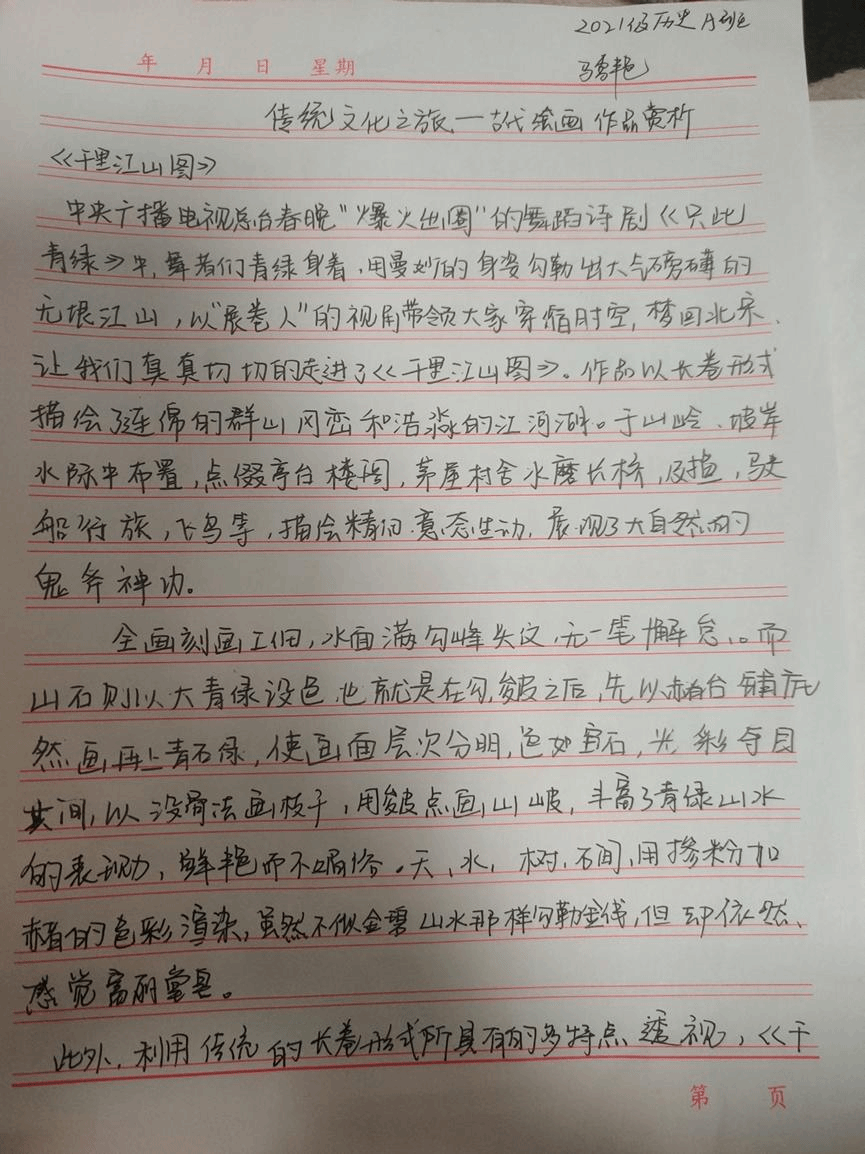 2021级历史A班
年 月 日 星期
马秀艳
传统文化之旅—古代绘画作品赏析
《千里江山图》
中央广播电视总台春晚“爆火出圈”的舞蹈诗剧《只此
青绿》中,舞者们青绿身着,用曼妙的身姿勾勒出大气磅礴的
无垠江山,以“展卷人”的视角带领大家穿缩时空,梦回北宋、
让我们真真切切的走进了《千里江山图》。作品以长卷形式
描绘了连绵的群山冈峦和浩淼的江河湖。于山岭、坡岸
水际中布置,点缀亭台楼阁,茅屋村舍水磨长桥,及捕,驶
船行旅,飞鸟等,描绘精细,意态生动,展现了大自然的
鬼斧神功。
全画刻画工细,水面满勾峰头纹,无一笔懈怠、。而
山石则以大青绿设色也就是在勾,皴之后,先以赭台铺底
然画再上青石绿,使画面层次分明,色如宝石,光彩夺目
其间,以没骨法画枝干,用皴点画山岥,丰富了青绿山水
的表现力,鲜艳而不媚俗。天、水、树、石间,用掺粉加
赭的色彩渲染,虽然不似金碧山水那样勾勒金线,但却依然、
感觉富丽堂皇。
此外,利用传统的长卷形式所具有的多特点透视,《千
第 页